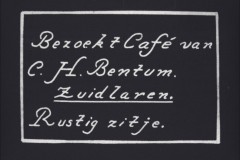 Bezoekt Café van
C. H. Bentum.
Zuidlaren.
Rustig zitje.